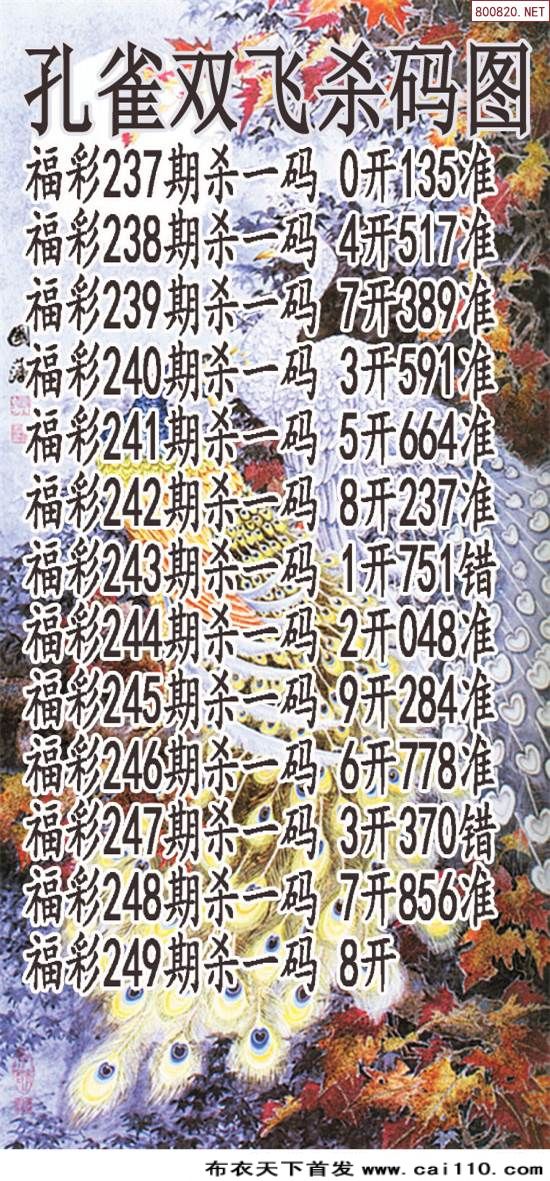 800820.NET
孔雀双飞杀码图
福彩237期杀一码 0开135准
福彩238期杀一码 4开517准
福彩239期杀一码 7开389准
福彩240期杀一码 3开591准
福彩241期杀一码 5开664准
福彩242期杀一码 8开237准
福彩243期杀一码 1开751错
福彩244期杀一码 2开048准
福彩245期杀一码 9开284准
福彩246期杀一码 6开778准
福彩247期杀一码 3开370错
福彩248期杀一码 7开856准
福彩249期杀一码 8开
布衣天下首发 www.cai110.com